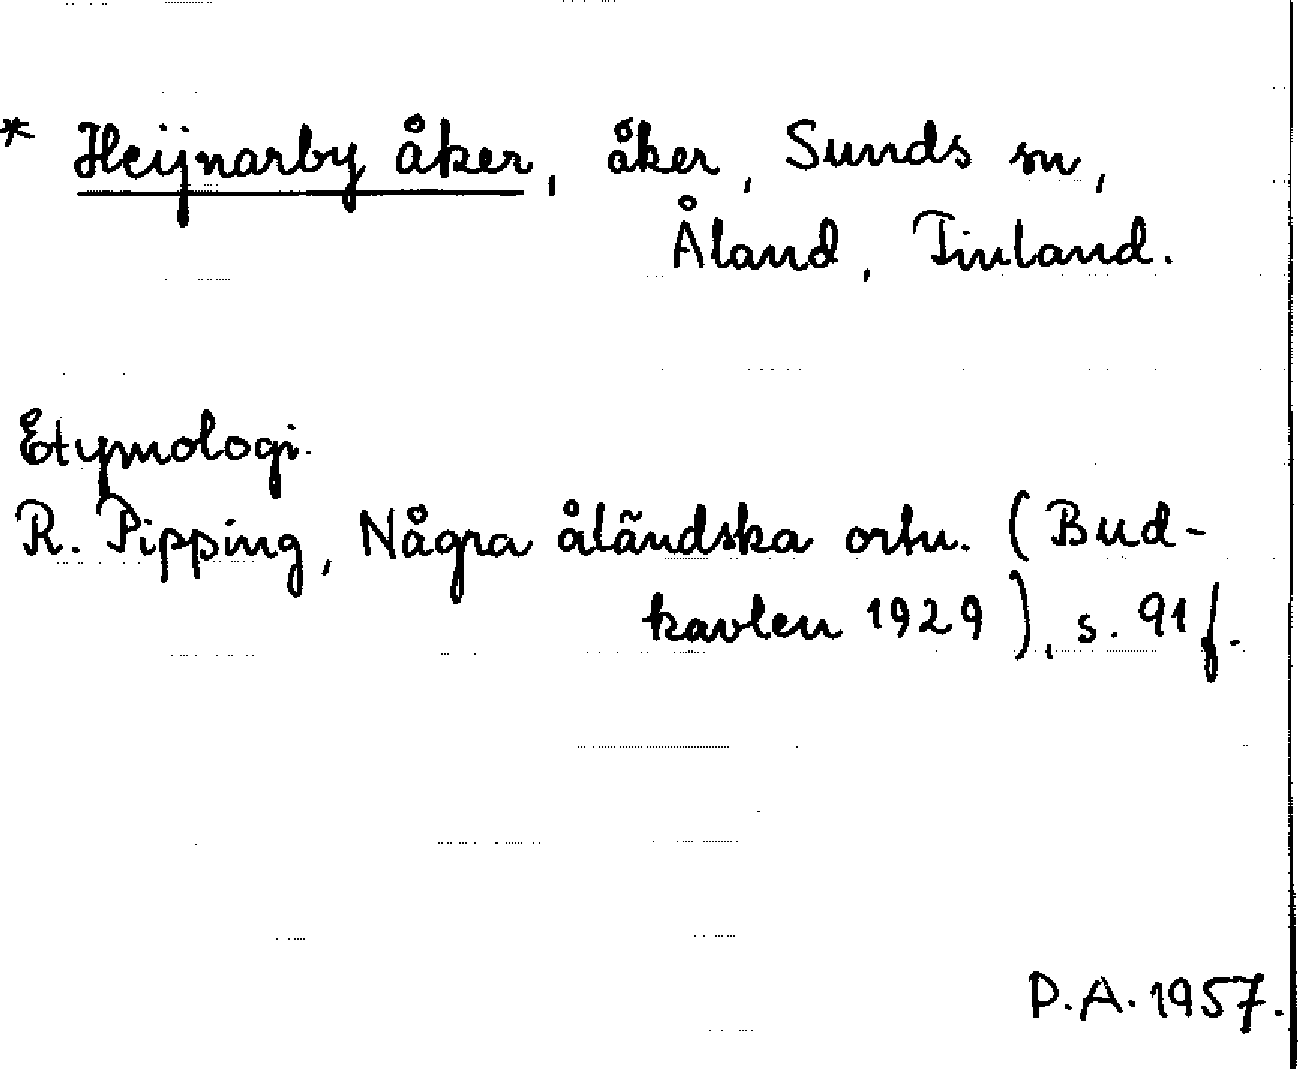 * Heijnarby åker, åker, Sunds sn,
Åland, Finland.
Etymologi.
R. Pipping, Några åländska ortn. (Bud-
kavlen 1929), s. 91 f.
P.A. 1957.